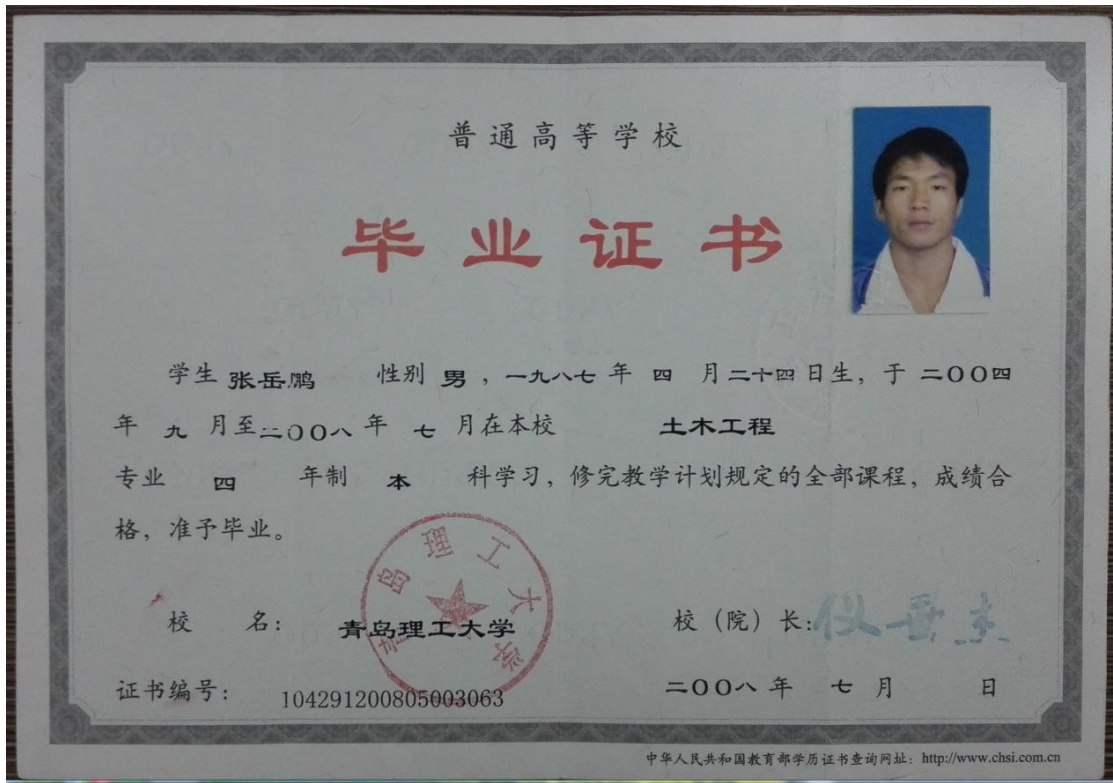 普通高等学校
毕业证书
学生 张岳鹏 性别 男，一九八七 年 四 月二十四日生，于 二〇〇四
年 九 月至二〇〇八 年 七 月在本校 土木工程
专业 四 年制 本 科学习，修完教学计划规定的全部课程，成绩合
格，准予毕业。
青岛理工大学
校 名： 青岛理工大学 校（院）长：仪垂杰
证书编号： 104291200805003063 二〇〇八 年 七 月 日
中华人民共和国教育部学历证书查询网址：http://www.chsi.com.cn